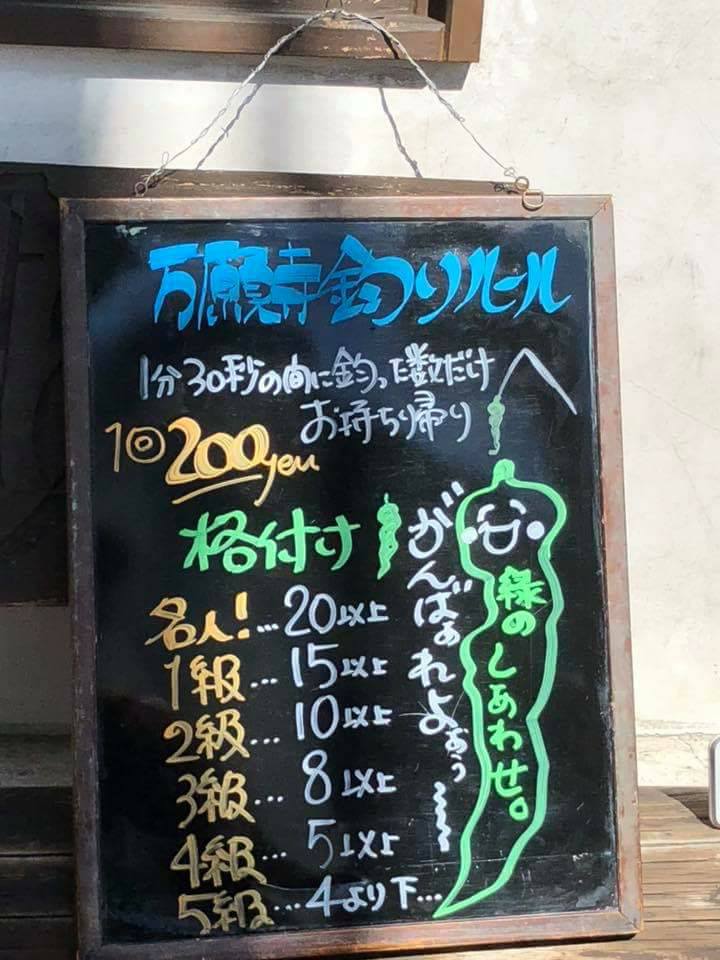 万願寺釣りルール
1分30秒の間に釣った数だけ
お持ち帰り
1回200yen
格付け
名人!…20以上
1級…15以上
2級…10以上
3級…8以上
4級…5以上
5級…4より下…
がんばぁれよぉぅ〜
緑のしあわせ。